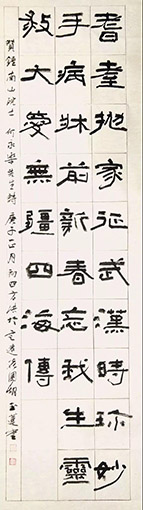 耆耋抛家征武漢時珍妙
手病牀前新春忘我生靈
救大愛無疆四海傳
賀鍾南山院士 先生詩 庚子正月初四 書